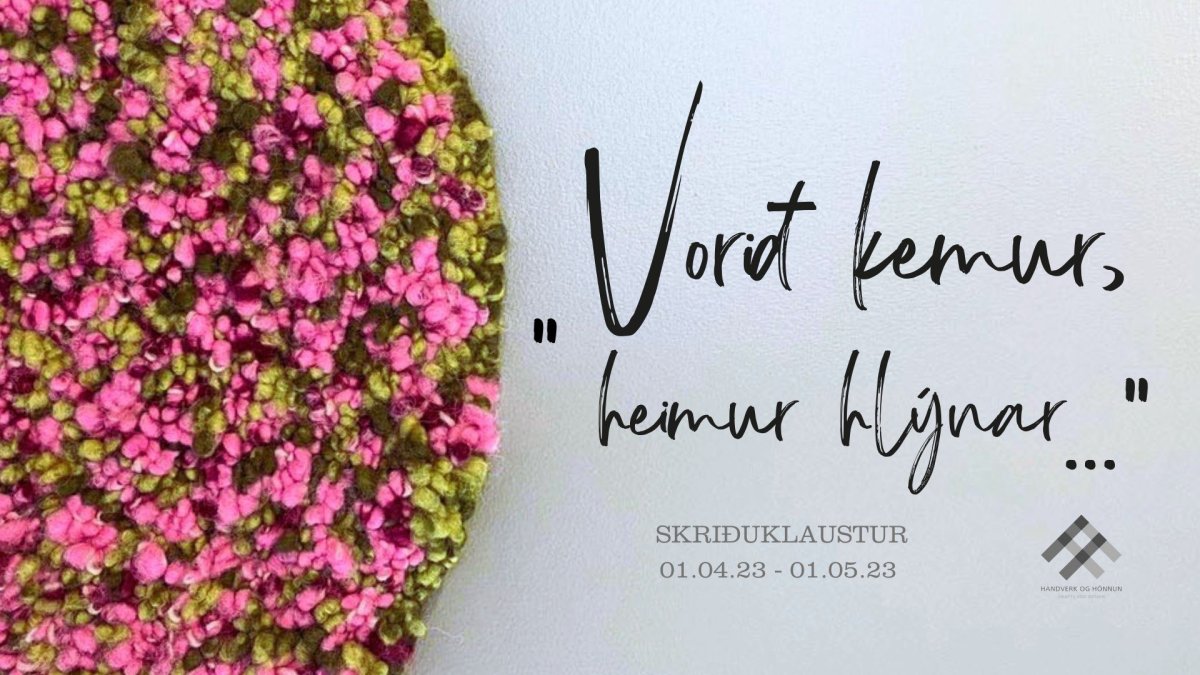 "Vorið kemur,
heimur hlýnar..."
SKRIÐUKLAUSTUR
01.04.23 - 01.05.23
HANDVERK OG HÖNNUN
CRAFTS AND DESIGN